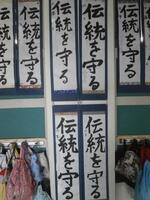 伝統を守る
伝統を守る
伝統を守る
伝統を守る
伝統を守る
伝統を守る